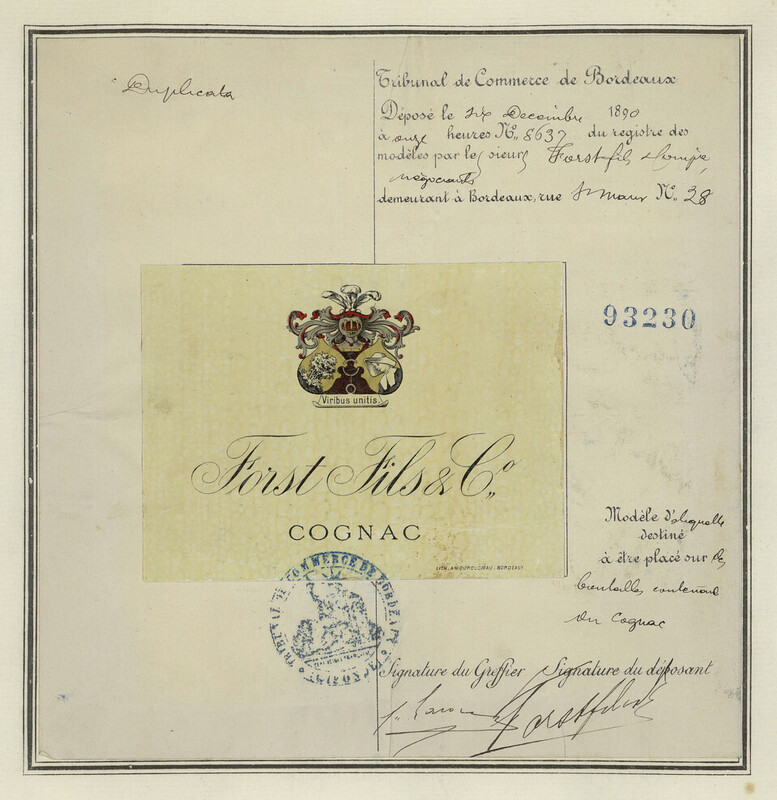 Duplicata
Tribunal de Commerce de Bordeaux
Déposé le six Decembre 1890
à onze heures N° 8637 du registre des
modèles par les sieurs Forst fils & Compie
négociants
demeurant à Bordeaux, rue St Maur N° 28
93230
Viribus unitis
Forst Fils & Cº
COGNAC
LITH. BORDEAUX
Modèle d'étiquette
destiné
à être placé sur des
bouteilles contenant
du Cognac
TRIBUNAL DE COMMERCE DE BORDEAUX
Signature du Greffier Signature du déposant
Forst fils